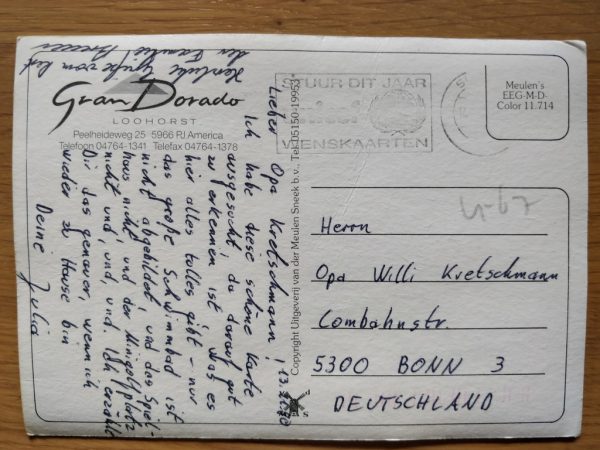 Gran Dorado
LOOHORST
Peelheideweg 25 5966 RJ America
Telefoon 04764-1341 Telefax 04764-1378
STUUR DIT JAAR
unicef
WENSKAARTEN
Meulen's
EEG-M-D-
Color 11.714
Copyright Uitgeverij van der Meulen Sneek b.v., Tel. 05150-19953*
Lieber Opa Kretschmann!
Ich habe diese schöne Karte
ausgesucht, da darauf gut
zu erkennen ist was es
hier alles tolles gibt - nur
das große Schwimmbad ist
nicht abgebildet, und das Spiel-
haus nicht, und der Minigolfplatz
nicht und, und, und. Ich erzähle
Dir das genauer, wenn ich
wieder zu Hause bin
Deine Julia
Herzliche Grüße vom Rest
der Familie!
Herrn
Opa Willi Kretschmann
Combahnstr.
5300 BONN 3
DEUTSCHLAND